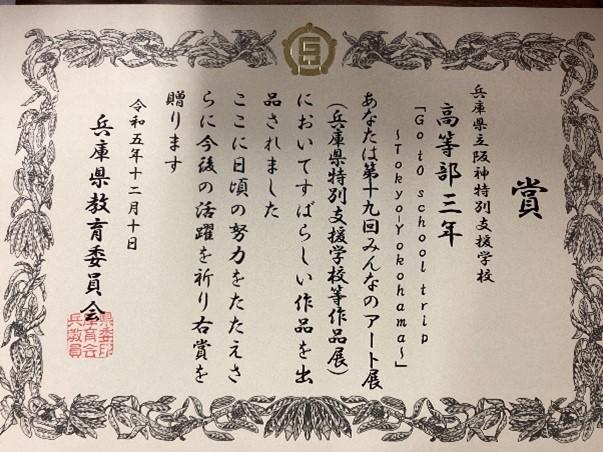 賞
兵庫県立阪神特別支援学校
高等部三年
「Got0 school trip
～Tokyo-Yokohama～」
あなたは第十九回みんなのアート展
(兵庫県特別支援学校等作品展)
においてすばらしい作品を出
品されました
ここに日頃の努力をたたえさ
らに今後の活躍を祈り右賞を
贈ります
令和五年十二月十日
兵庫県教育委員会